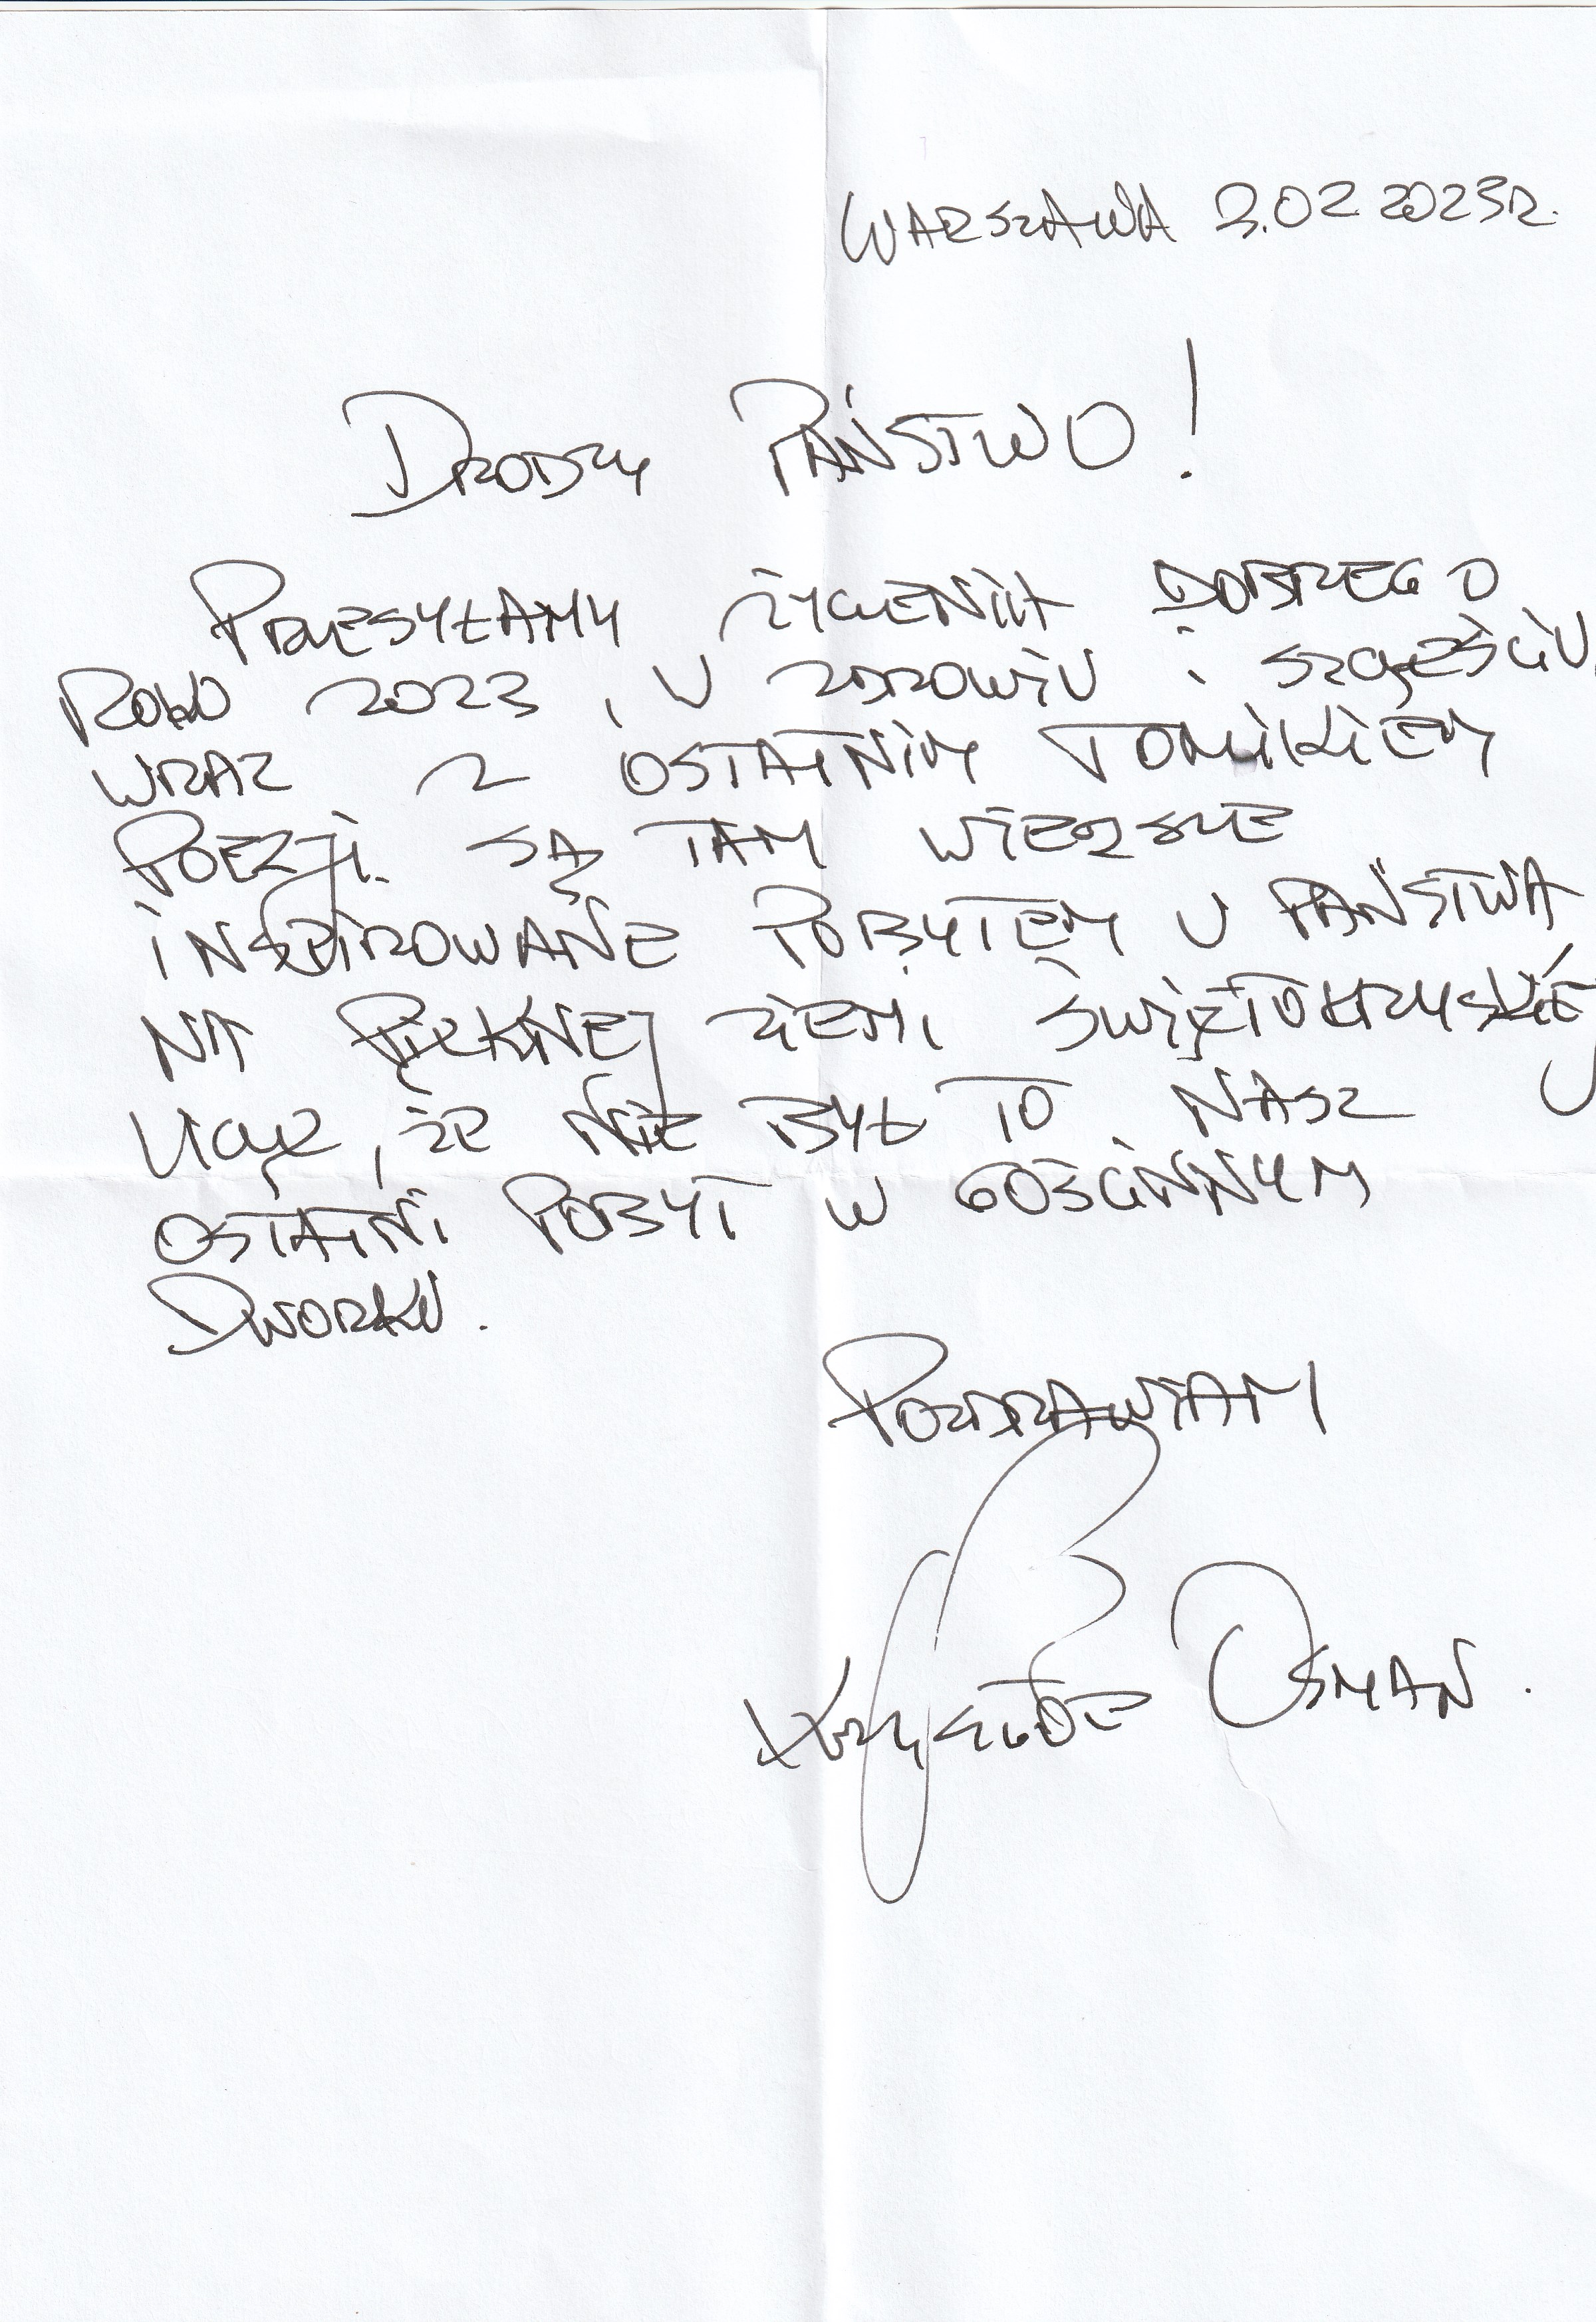 WARSZAWA 3.02 2023R.
DRODZY PAŃSTWO!
PRZESYŁAMY ŻYCZENIA DOBREGO
ROKU 2023, W ZDROWIU i SZCZĘŚCIU,
WRAZ Z OSTATNIM TOMIKIEM
POEZJI. SĄ TAM WIERSZE
INSPIROWANE POBYTEM U PAŃSTWA
NA PIĘKNEJ ZIEMI ŚWIĘTOKRZYSKIEJ
LICZĘ, ŻE NIE BYŁ TO NASZ
OSTATNI POBYT W GOŚCINNYM
DWORKU.
POZDRAWIAM
KRZYSZTOF OSMAN.